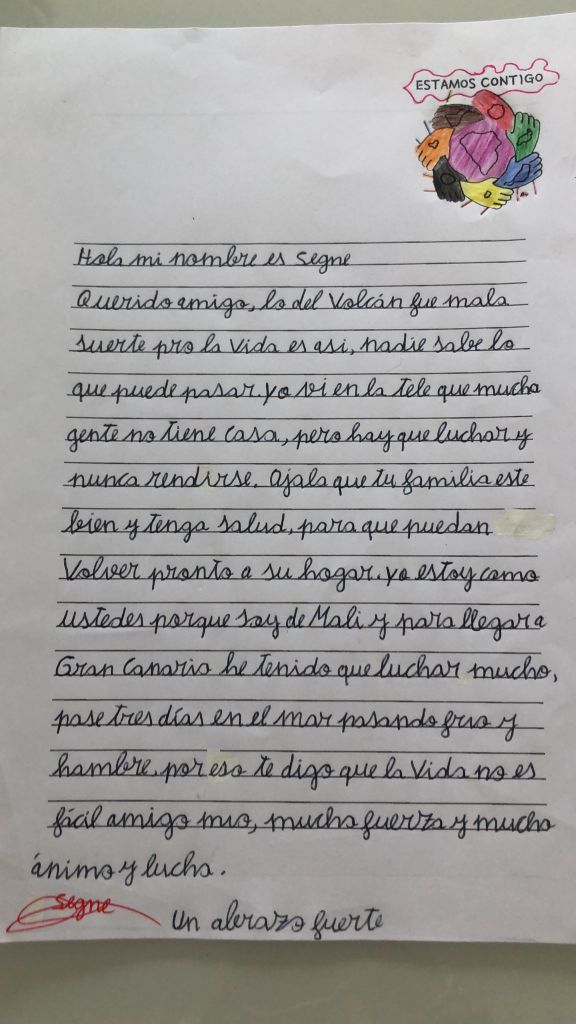 ESTAMOS CONTIGO
Hola mi nombre es Segne
Querido amigo, lo del Volcán fue mala
suerte pro la Vida es asi, nadie sabe lo
que puede pasar. yo vi en la tele que mucha
gente no tiene casa, pero hay que luchar y
nunca rendirse. Ojala que tu familia este
bien y tenga salud, para que puedan
Volver pronto a su hogar. yo estoy como
ustedes porque soy de Mali y para llegar a
Gran Canaria he tenido que luchar mucho,
pase tres días en el mar pasando frio y
hambre, por eso te digo que la Vida no es
fácil amigo mio, mucha fuerza y mucho
ánimo y lucha.
Segne Un abrazo fuerte